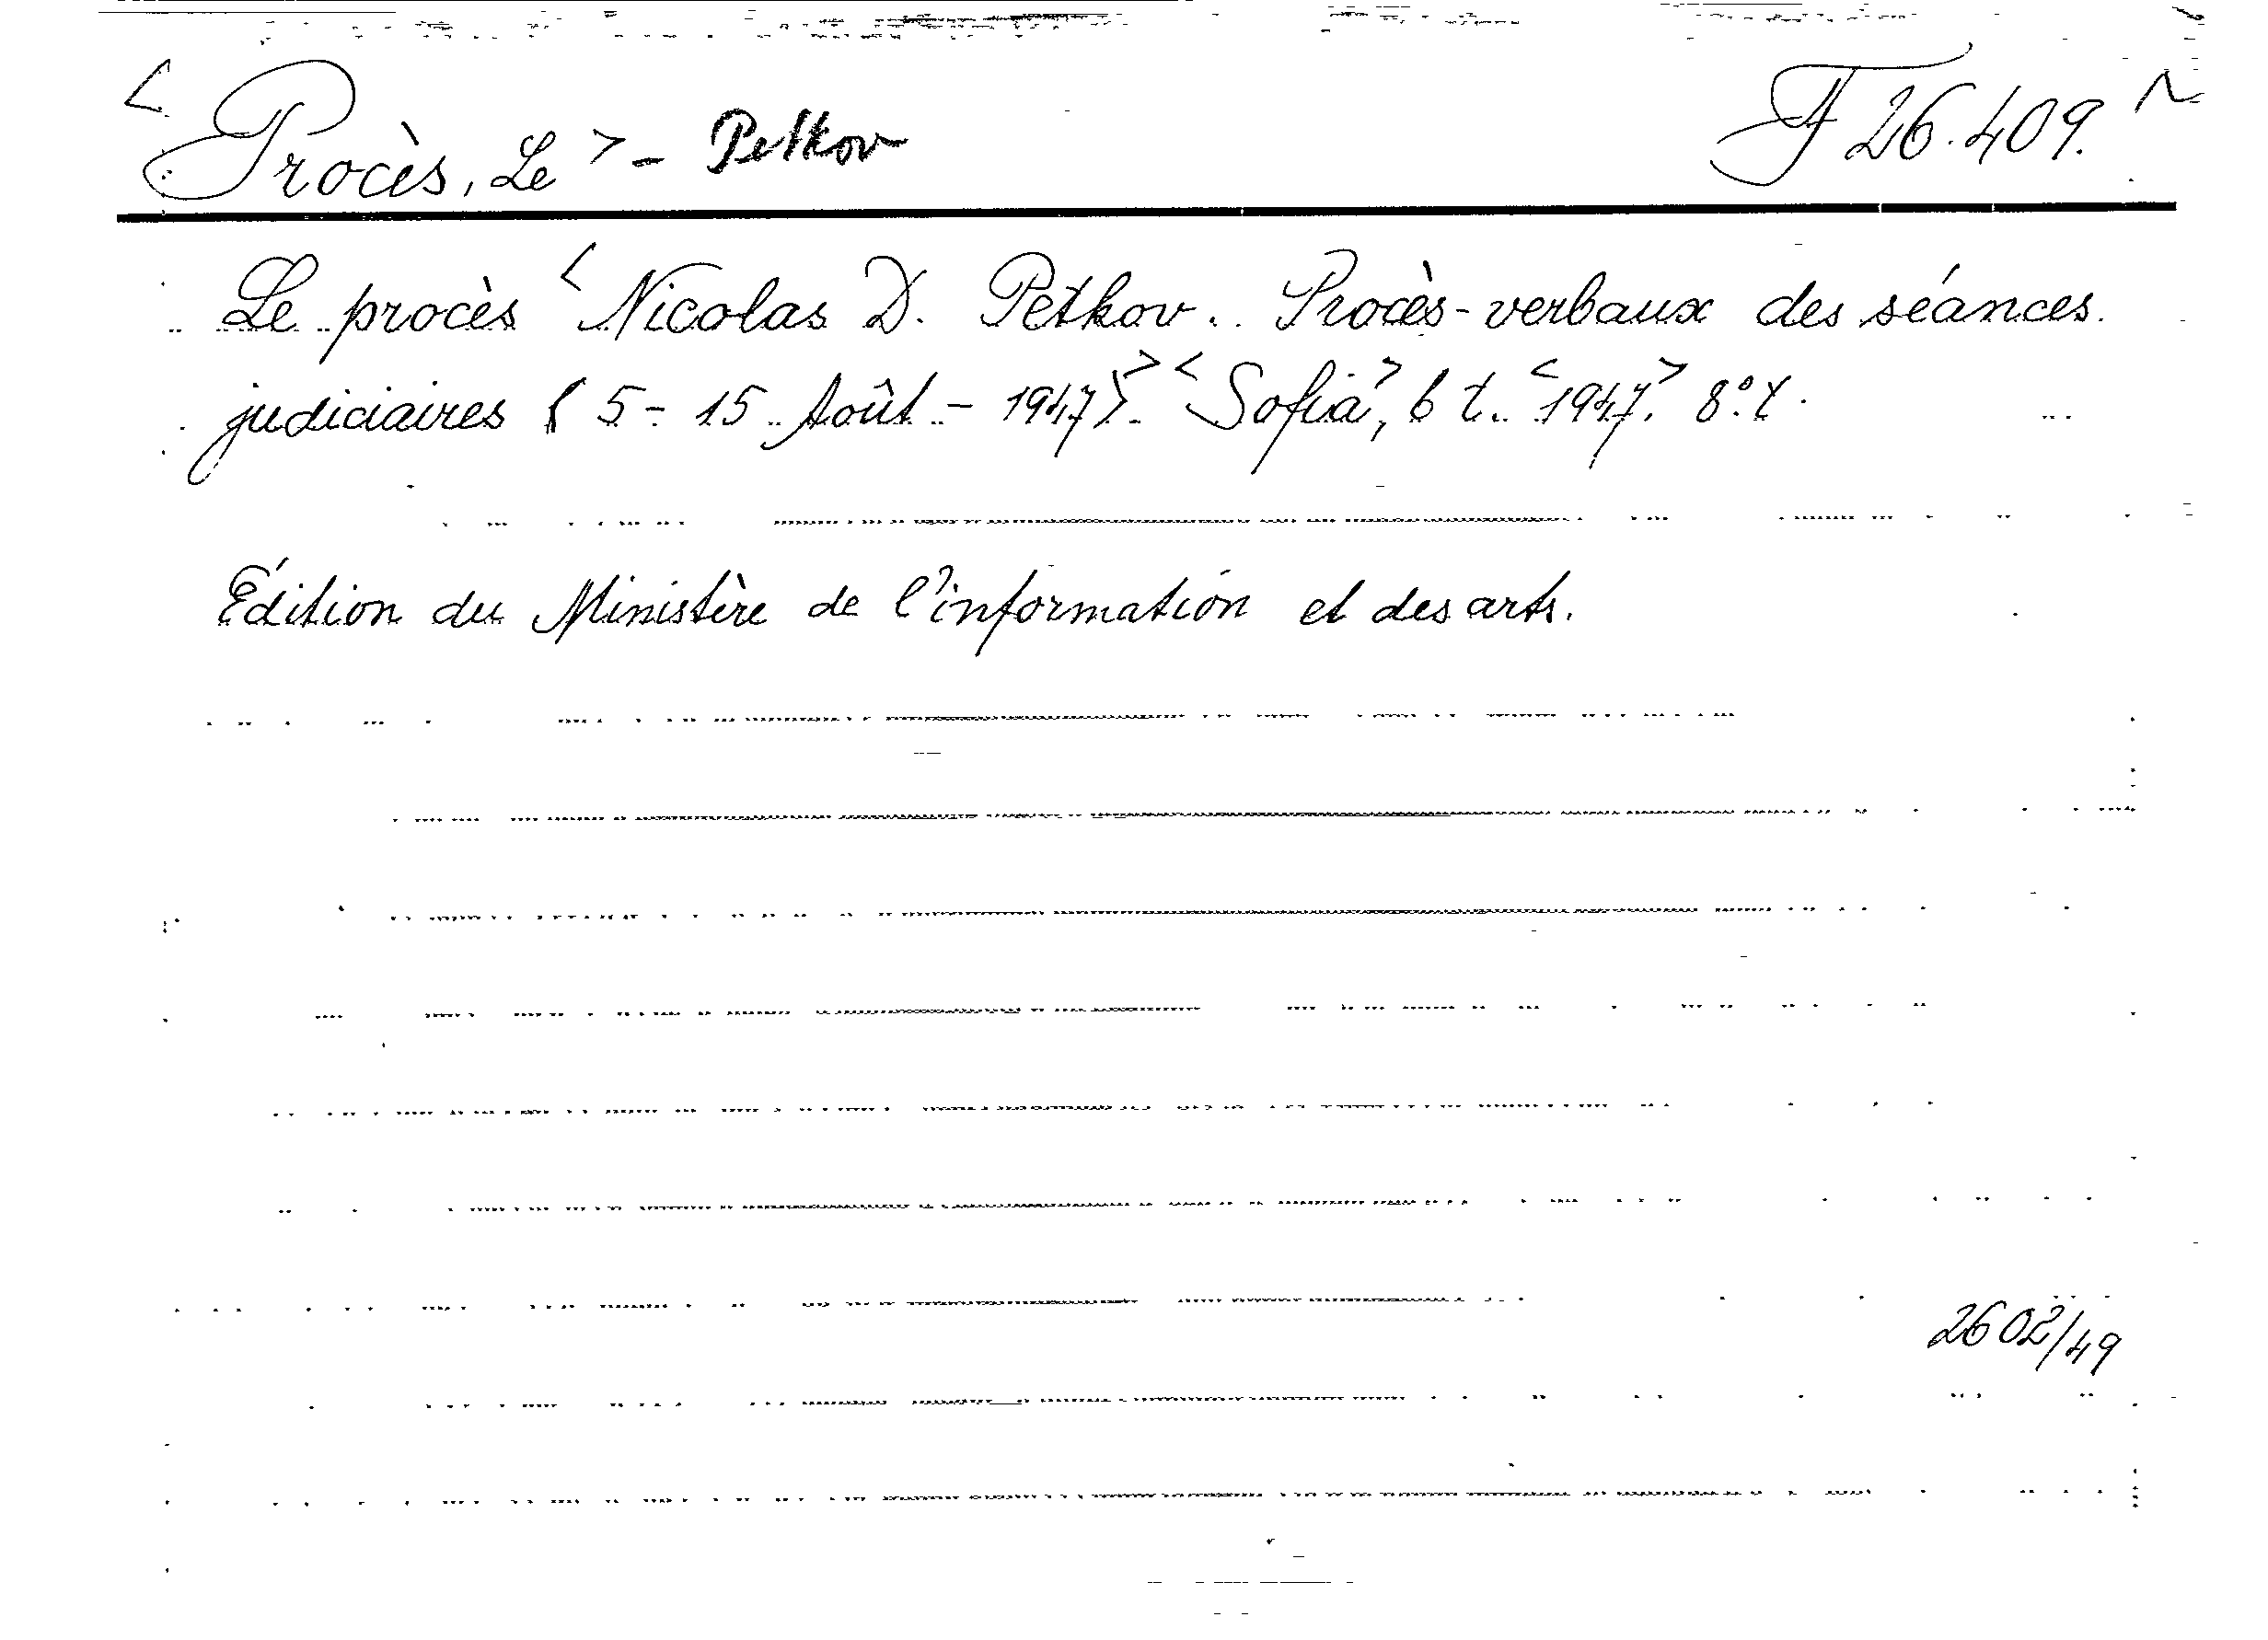 <Procès, Le> - Petkov F 26.409.
Le procès <Nicolas D. Petkov. Procès-verbaux des séances
judiciaires ( 5 - 15 Août - 1947).> <Sofia>, b t. <1947.> 8°.
Édition du Ministère de l'information et des arts.
2602/49